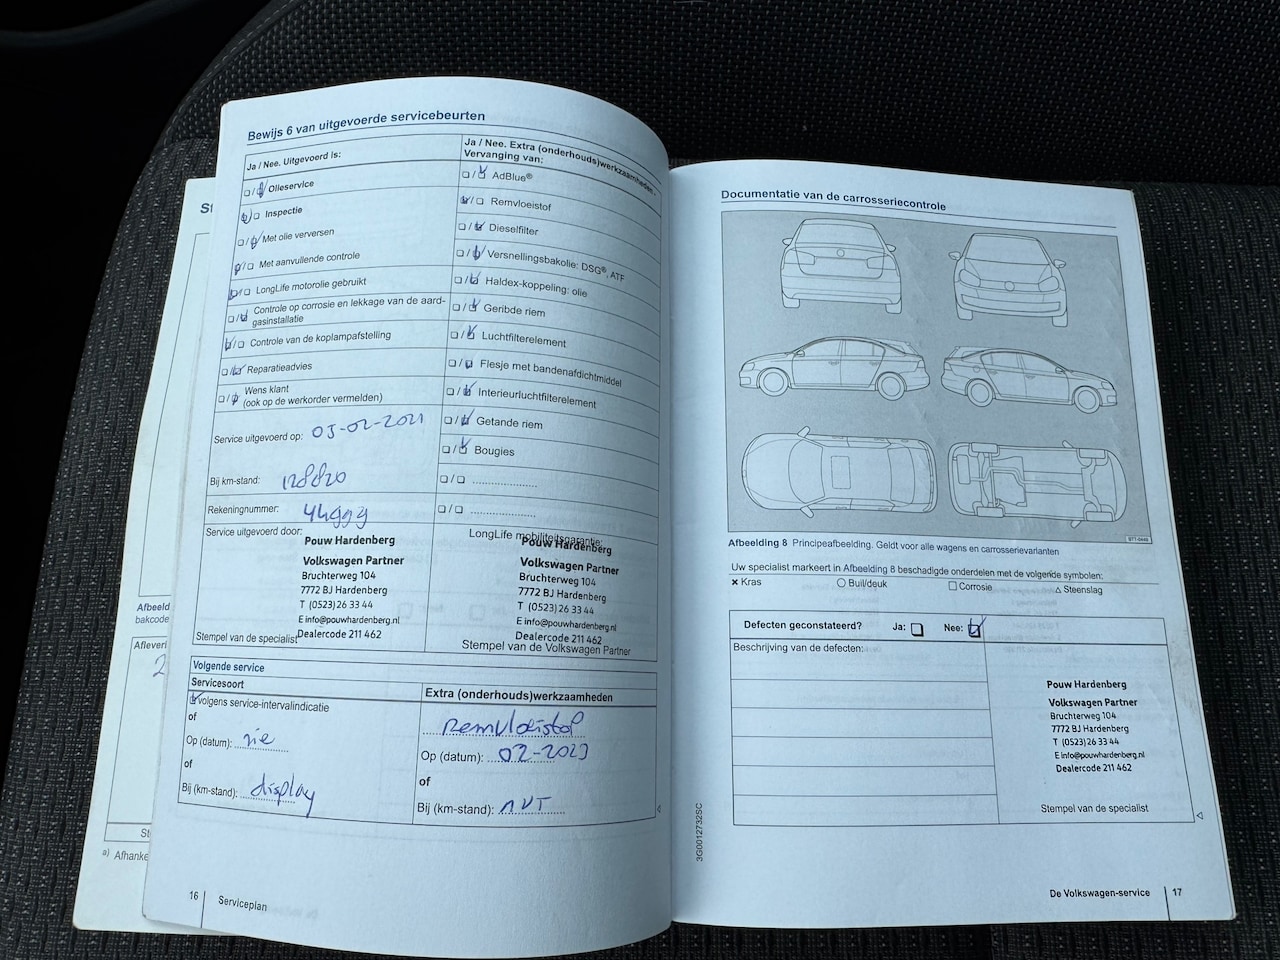 Bewijs 6 van uitgevoerde servicebeurten
Ja / Nee. Uitgevoerd is:
Olieservice
Inspectie
Met olie verversen
Met aanvullende controle
LongLife motorolie gebruikt
Controle op corrosie en lekkage van de aard-
gasinstallatie
Controle van de koplampafstelling
Reparatieadvies
Wens klant
(ook op de werkorder vermelden)
Service uitgevoerd op: 05-02-2021
Bij km-stand: 128820
Rekeningnummer:
Service uitgevoerd door:
Pouw Hardenberg
Volkswagen Partner
Bruchterweg 104
7772 BJ Hardenberg
T (0523) 26 33 44
E info@pouwhardenberg.nl
Dealercode 211 462
Stempel van de specialist
Ja / Nee. Extra (onderhouds)werkzaamheden -
Vervanging van:
AdBlue®
Remvloeistof
Dieselfilter
Versnellingsbakolie: DSG®, ATF
Haldex-koppeling: olie
Geribde riem
Luchtfilterelement
Flesje met bandenafdichtmiddel
Interieurluchtfilterelement
Getande riem
Bougies
LongLife mobiliteitsgarantie:
Pouw Hardenberg
Volkswagen Partner
Bruchterweg 104
7772 BJ Hardenberg
T (0523) 26 33 44
E info@pouwhardenberg.nl
Dealercode 211 462
Stempel van de Volkswagen Partner
Volgende service
Servicesoort
volgens service-intervalindicatie
of
Op (datum): zie
of
Bij (km-stand): display
Extra (onderhouds)werkzaamheden
Remvloeistof
Op (datum): 02-2023
of
Bij (km-stand): nvt
16
Serviceplan
Documentatie van de carrosseriecontrole
B7T-0449
Afbeelding 8 Principeafbeelding. Geldt voor alle wagens en carrosserievarianten
Uw specialist markeert in Afbeelding 8 beschadigde onderdelen met de volgende symbolen:
× Kras
○ Buil/deuk
□ Corrosie
△ Steenslag
Defecten geconstateerd?
Ja:
Nee:
Beschrijving van de defecten:
Pouw Hardenberg
Volkswagen Partner
Bruchterweg 104
7772 BJ Hardenberg
T (0523) 26 33 44
E info@pouwhardenberg.nl
Dealercode 211 462
Stempel van de specialist
3G0012732SC
De Volkswagen-service
17
St
Afbeeld
bakcode
Afleveri
2
St
a) Afhanke